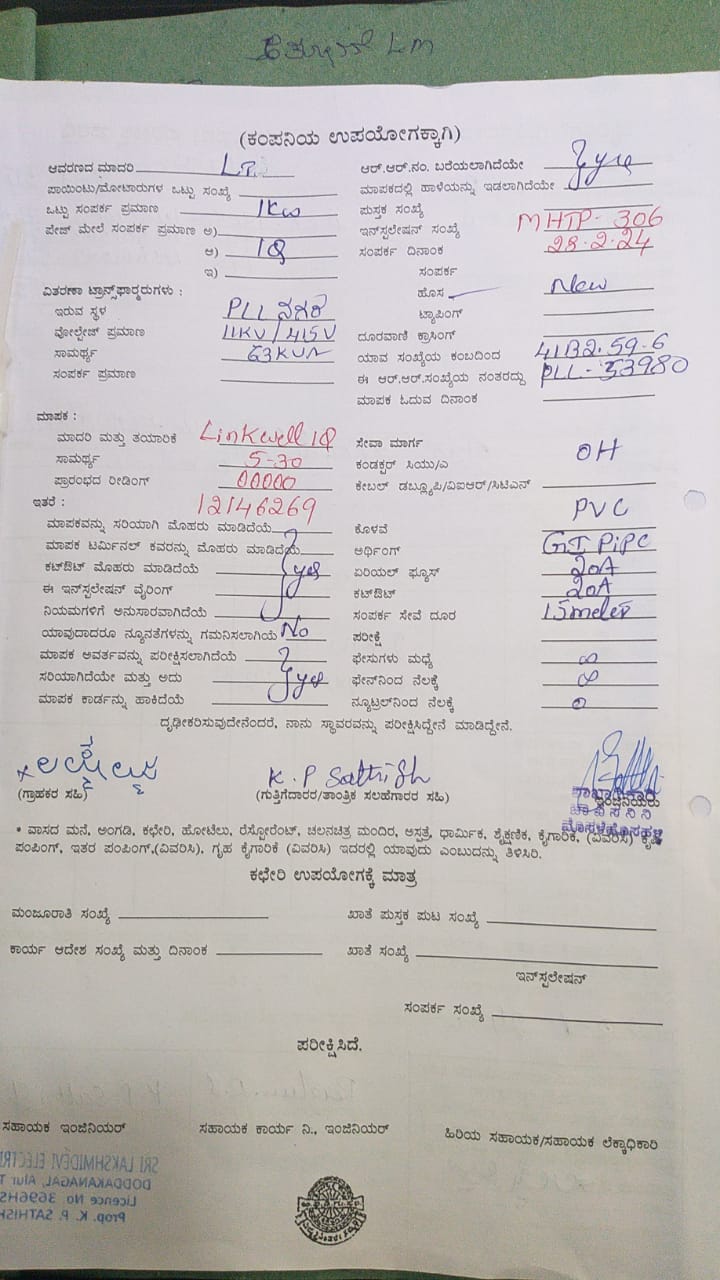 LM
(ಕಂಪನಿಯ ಉಪಯೋಗಕ್ಕಾಗಿ)
ಆವರಣದ ಮಾದರಿ L.T.
ಆರ್.ಆರ್.ನಂ. ಬರೆಯಲಾಗಿದೆಯೇ
ಪಾಯಿಂಟು/ಮೋಟಾರುಗಳ ಒಟ್ಟು ಸಂಖ್ಯೆ
ಮಾಪಕದಲ್ಲಿ ಹಾಳೆಯನ್ನು ಇಡಲಾಗಿದೆಯೇ
ಒಟ್ಟು ಸಂಪರ್ಕ ಪ್ರಮಾಣ 1Kw
ಪುಸ್ತಕ ಸಂಖ್ಯೆ
ಪೇಜ್ ಮೇಲೆ ಸಂಪರ್ಕ ಪ್ರಮಾಣ ಅ)
ಇನ್‌ಸ್ಟಲೇಷನ್ ಸಂಖ್ಯೆ MHTP- 306
ಆ) 1Q
ಸಂಪರ್ಕ ದಿನಾಂಕ 28-2-24
ಇ)
ಸಂಪರ್ಕ
ವಿತರಣಾ ಟ್ರಾನ್ಸ್‌ಫಾರ್‍ಮರುಗಳು :
ಹೊಸ New
ಇರುವ ಸ್ಥಳ PLL ನಗರ
ಟ್ಯಾಪಿಂಗ್
ವೋಲ್ಟೇಜ್ ಪ್ರಮಾಣ 11KV / 415V
ದೂರವಾಣಿ ಕ್ರಾಸಿಂಗ್
ಸಾಮರ್ಥ್ಯ 63KVA
ಯಾವ ಸಂಖ್ಯೆಯ ಕಂಬದಿಂದ 41B2.59-6
ಸಂಪರ್ಕ ಪ್ರಮಾಣ
ಈ ಆರ್.ಆರ್.ಸಂಖ್ಯೆಯ ನಂತರದ್ದು PLL-53980
ಮಾಪಕ ಓದುವ ದಿನಾಂಕ
ಮಾಪಕ :
ಮಾದರಿ ಮತ್ತು ತಯಾರಿಕೆ Linkwell 1Q
ಸೇವಾ ಮಾರ್ಗ OH
ಸಾಮರ್ಥ್ಯ 5-30
ಕಂಡಕ್ಟರ್ ಸಿಯು/ಎ
ಪ್ರಾರಂಭದ ರೀಡಿಂಗ್ 00000
ಕೇಬಲ್ ಡಬ್ಲ್ಯೂಪಿ/ವಿಐಆರ್/ಸಿಟಿಎನ್
ಇತರೆ : 12146269
ಮಾಪಕವನ್ನು ಸರಿಯಾಗಿ ಮೊಹರು ಮಾಡಿದೆಯೆ
ಕೊಳವೆ PVC
ಮಾಪಕ ಟರ್ಮಿನಲ್ ಕವರನ್ನು ಮೊಹರು ಮಾಡಿದೆಯೆ
ಅರ್ಥಿಂಗ್ GI PiPC
ಕಟ್‌ಔಟ್ ಮೊಹರು ಮಾಡಿದೆಯೆ yes
ಏರಿಯಲ್ ಫ್ಯೂಸ್ 20A
ಈ ಇನ್‌ಸ್ಟಲೇಷನ್ ವೈರಿಂಗ್
ಕಟ್‌ಔಟ್ 20A
ನಿಯಮಗಳಿಗೆ ಅನುಸಾರವಾಗಿದೆಯೆ
ಸಂಪರ್ಕ ಸೇವೆ ದೂರ 15meter
ಯಾವುದಾದರೂ ನ್ಯೂನತೆಗಳನ್ನು ಗಮನಿಸಲಾಗಿಯೆ No
ಪರೀಕ್ಷೆ
ಮಾಪಕ ಅವರ್ತವನ್ನು ಪರೀಕ್ಷಿಸಲಾಗಿದೆಯೆ
ಫೇಸುಗಳು ಮಧ್ಯೆ ∞
ಸರಿಯಾಗಿದೆಯೇ ಮತ್ತು ಅದು yes
ಫೇಸ್‌ನಿಂದ ನೆಲಕ್ಕೆ ∞
ಮಾಪಕ ಕಾರ್ಡನ್ನು ಹಾಕಿದೆಯೆ
ನ್ಯೂಟ್ರಲ್‌ನಿಂದ ನೆಲಕ್ಕೆ 0
ದೃಢೀಕರಿಸುವುದೇನೆಂದರೆ, ನಾನು ಸ್ಥಾವರವನ್ನು ಪರೀಕ್ಷಿಸಿದ್ದೇನೆ ಮಾಡಿದ್ದೇನೆ.
K. P Sathish
(ಗ್ರಾಹಕರ ಸಹಿ)
(ಗುತ್ತಿಗೆದಾರರ/ತಾಂತ್ರಿಕ ಸಲಹೆಗಾರರ ಸಹಿ)
ಇಂಜಿನಿಯರು
ಶಾಖಾಧಿಕಾರಿ
ಚಾ ವಿ ಸ ನಿ ನಿ
ಮೊಸಳೆಹೊಸಹಳ್ಳಿ
• ವಾಸದ ಮನೆ, ಅಂಗಡಿ, ಕಛೇರಿ, ಹೋಟೆಲು, ರೆಸ್ಟೋರೆಂಟ್, ಚಲನಚಿತ್ರ ಮಂದಿರ, ಅಸ್ಪತ್ರೆ, ಧಾರ್ಮಿಕ, ಶೈಕ್ಷಣಿಕ, ಕೈಗಾರಿಕೆ, (ವಿವರಿಸಿ) ಕೃಷಿ
ಪಂಪಿಂಗ್, ಇತರ ಪಂಪಿಂಗ್,(ವಿವರಿಸಿ), ಗೃಹ ಕೈಗಾರಿಕೆ (ವಿವರಿಸಿ) ಇದರಲ್ಲಿ ಯಾವುದು ಎಂಬುದನ್ನು ತಿಳಿಸಿರಿ.
ಕಛೇರಿ ಉಪಯೋಗಕ್ಕೆ ಮಾತ್ರ
ಮಂಜೂರಾತಿ ಸಂಖ್ಯೆ
ಖಾತೆ ಪುಸ್ತಕ ಪುಟ ಸಂಖ್ಯೆ
ಕಾರ್ಯ ಆದೇಶ ಸಂಖ್ಯೆ ಮತ್ತು ದಿನಾಂಕ
ಖಾತೆ ಸಂಖ್ಯೆ
ಇನ್‌ಸ್ಟಲೇಷನ್
ಸಂಪರ್ಕ ಸಂಖ್ಯೆ
ಪರೀಕ್ಷಿಸಿದೆ.
ಸಹಾಯಕ ಇಂಜಿನಿಯರ್
ಸಹಾಯಕ ಕಾರ್ಯ ನಿ., ಇಂಜಿನಿಯರ್
ಹಿರಿಯ ಸಹಾಯಕ/ಸಹಾಯಕ ಲೆಕ್ಕಾಧಿಕಾರಿ
SRI LAKSHMIDEVI ELECTRI
DODDAKANAGAL, Alur T
Licence No. 3696HS
Prop. K. P. SATHISH